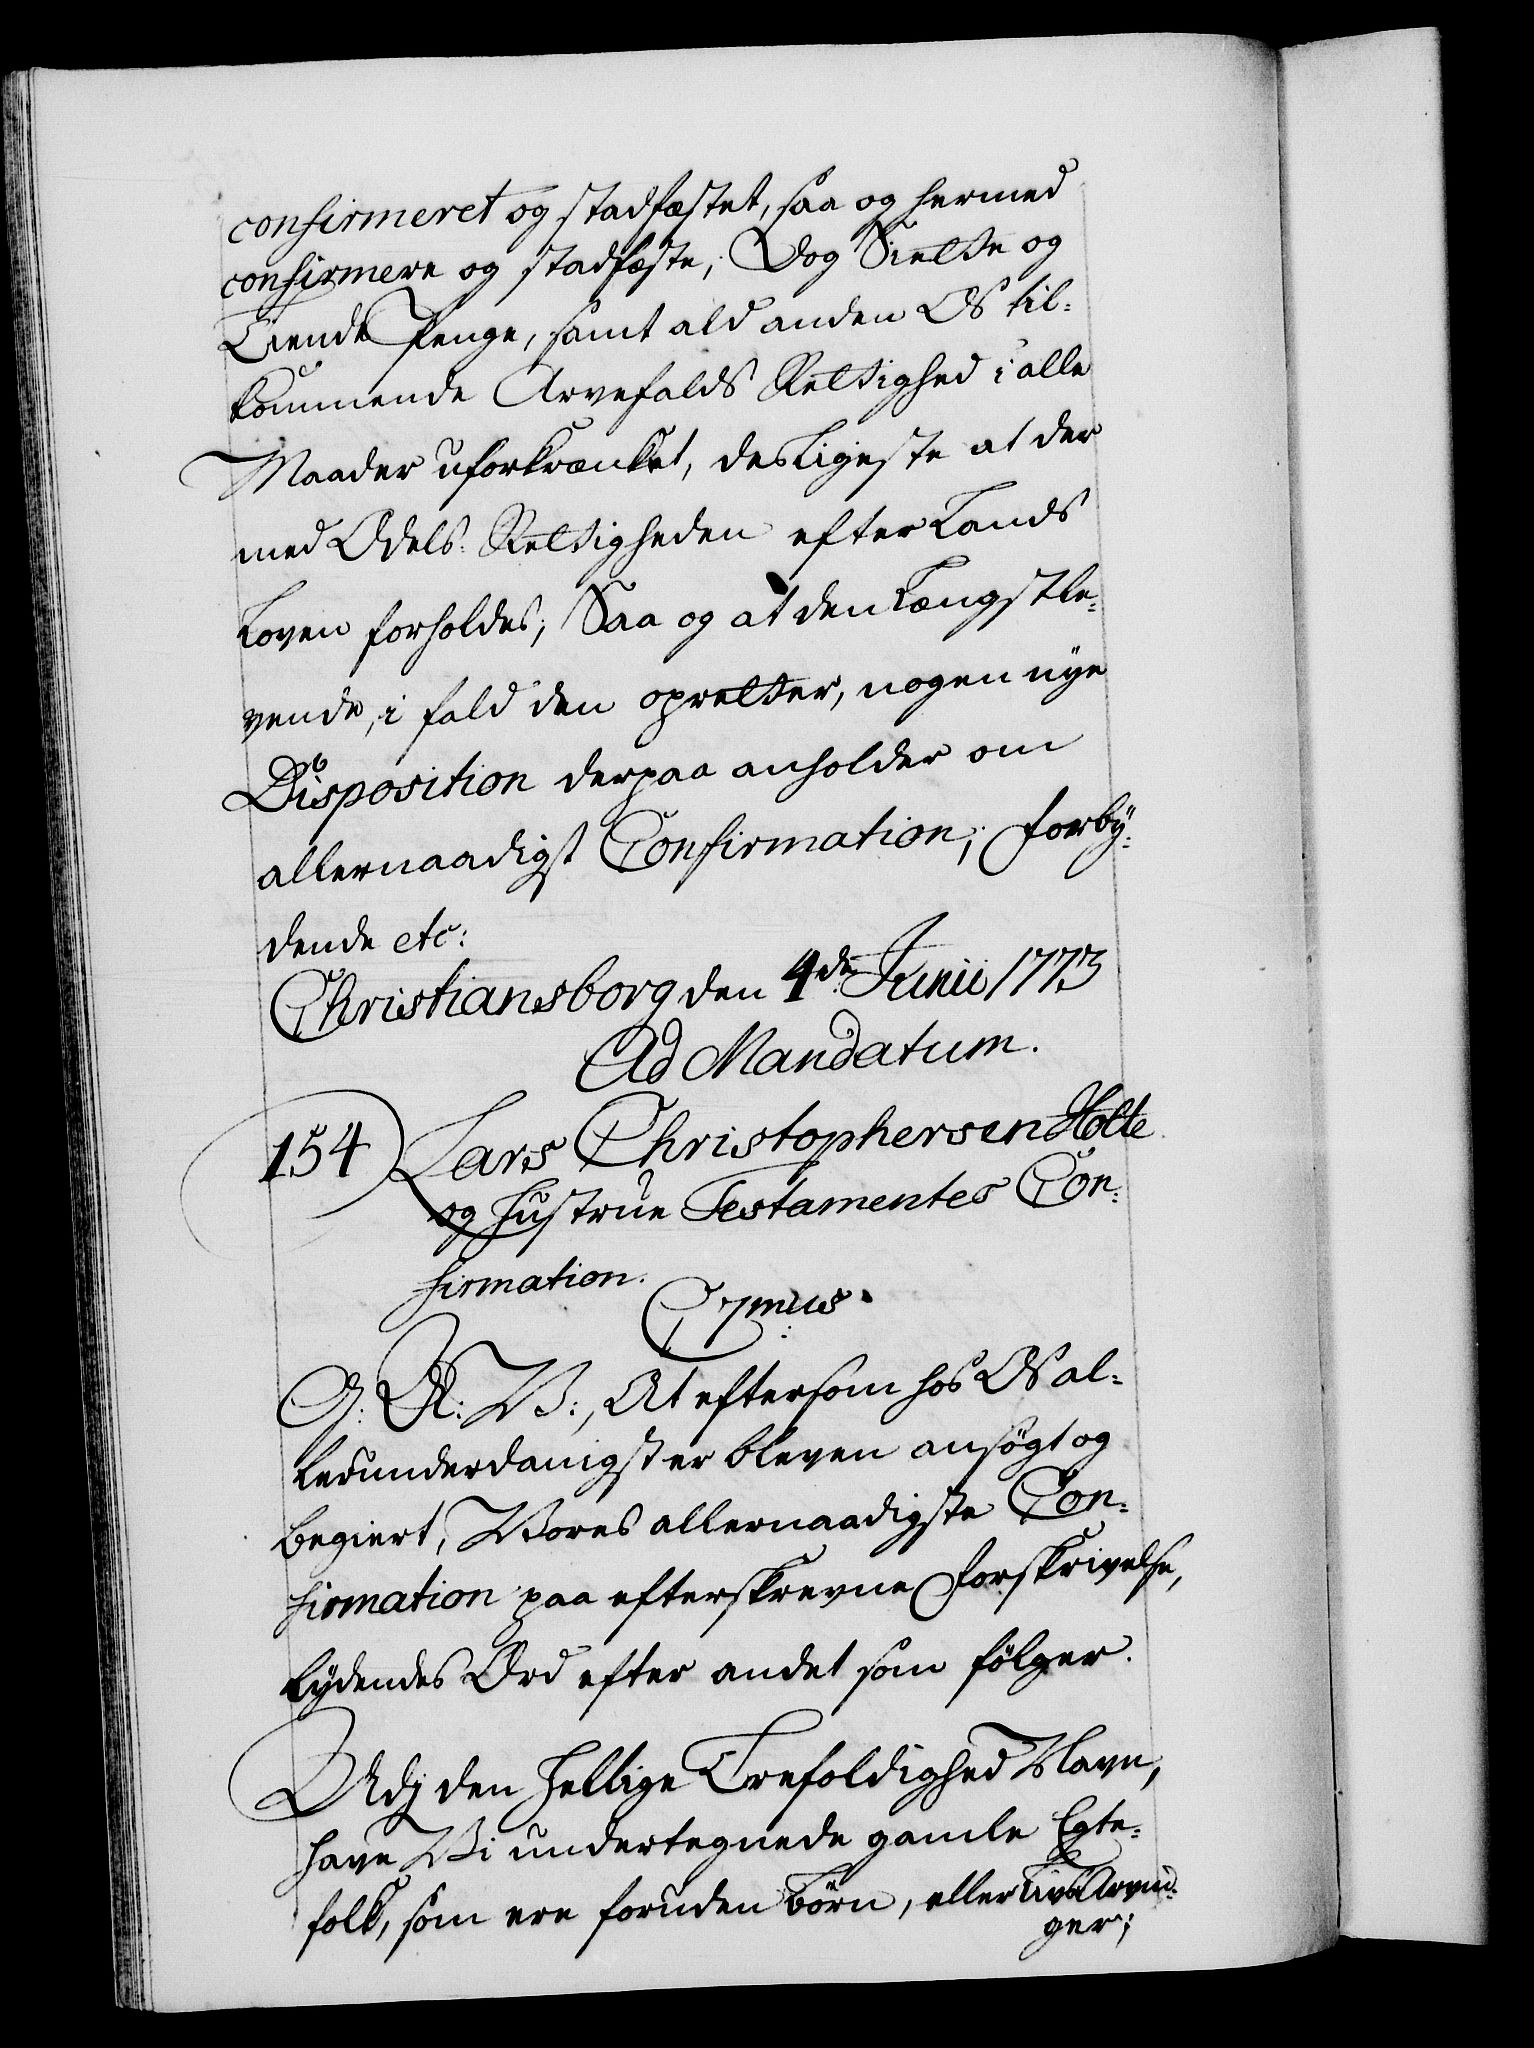 confirmeret og stadfæstet, saa og hermed
confirmere og stadfæste; Dog Siette og
Tiende Penge, samt ald anden Os til-
kommende Arvefalds Rettighed i alle
Maader uforkrænket, desligeste at der
med Odels-Rettigheden efter Lands
Loven forholdes; Saa og at den Længstle-
vende, i fald den opretter, nogen nye
Disposition derpaa anholder om
allernaadigst Confirmation; Forby-
dende etc:
Christiansborg den 4de Junii 1773
Ad Mandatum.
154) Lars Christophersen Holte
og Hustrue Testamentes Con-
firmation.
C7mus.
G: A: V:, At eftersom hos Os al-
lerunderdanigst er bleven ansøgt og
begiert, Vores allernaadigste Con-
firmation paa efterskrevne Forskrivelse,
lydendes Ord efter andet som følger.
Udj den Hellige Trefoldighed Navn,
have Vi undertegnede gamle Egte-
folk, som ere foruden Børn, eller Livs Arvin-
ger;